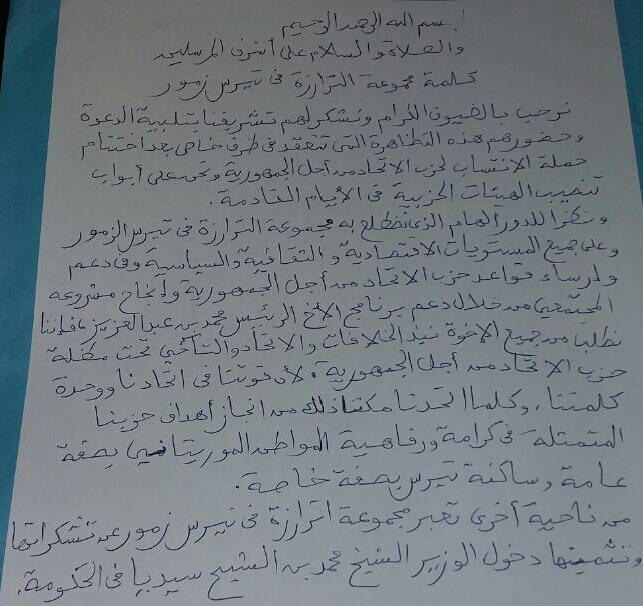 بسم الله الرحمن الرحيم
والصلاة والسلام على أشرف المرسلين
كلمة مجموعة الترارزة في تيرس زمور
نرحب بالضيوف الكرام ونشكرلهم تشريفنا بتلبية الدعوة
وحضورهم هذه التظاهرة التي تنعقد في ظرف خاص بعد اختتام
حملة الانتساب لحزب الاتحاد من أجل الجمهورية ونحن على أبواب
تنصيب الهيئات الحزبية في الأيام القادمة.
ونظرا للدور الهام الذي تضطلع به مجموعة الترارزة في تيرس الزمور
وعلى جميع المستويات الاقتصادية والثقافية والسياسية وفي دعم
وإرساء قواعد حزب الاتحاد من أجل الجمهورية وإنجاح مشروعه
المجتمعي من خلال دعم برنامج الأخ الرئيس محمد بن عبد العزيز، فإننا
نطلب من جميع الإخوة نبذ الخلافات والاتحاد والتآخي تحت مظلة
حزب الاتحاد من أجل الجمهورية. لأن قوتنا في اتحادنا ووحدة
كلمتنا، وكلما اتحدنا مكننا ذلك من انجاز أهداف حزبنا
المتمثلة في كرامة ورفاهية المواطن الموريتاني بصفة
عامة وساكنة تيرس بصفة خاصة.
من ناحية أخرى تعبر مجموعة اترارزة في تيرس زمور عن تشكراتها
وتثمينها دخول الوزير الشيخ محمد بن الشيخ سيديا في الحكومة.